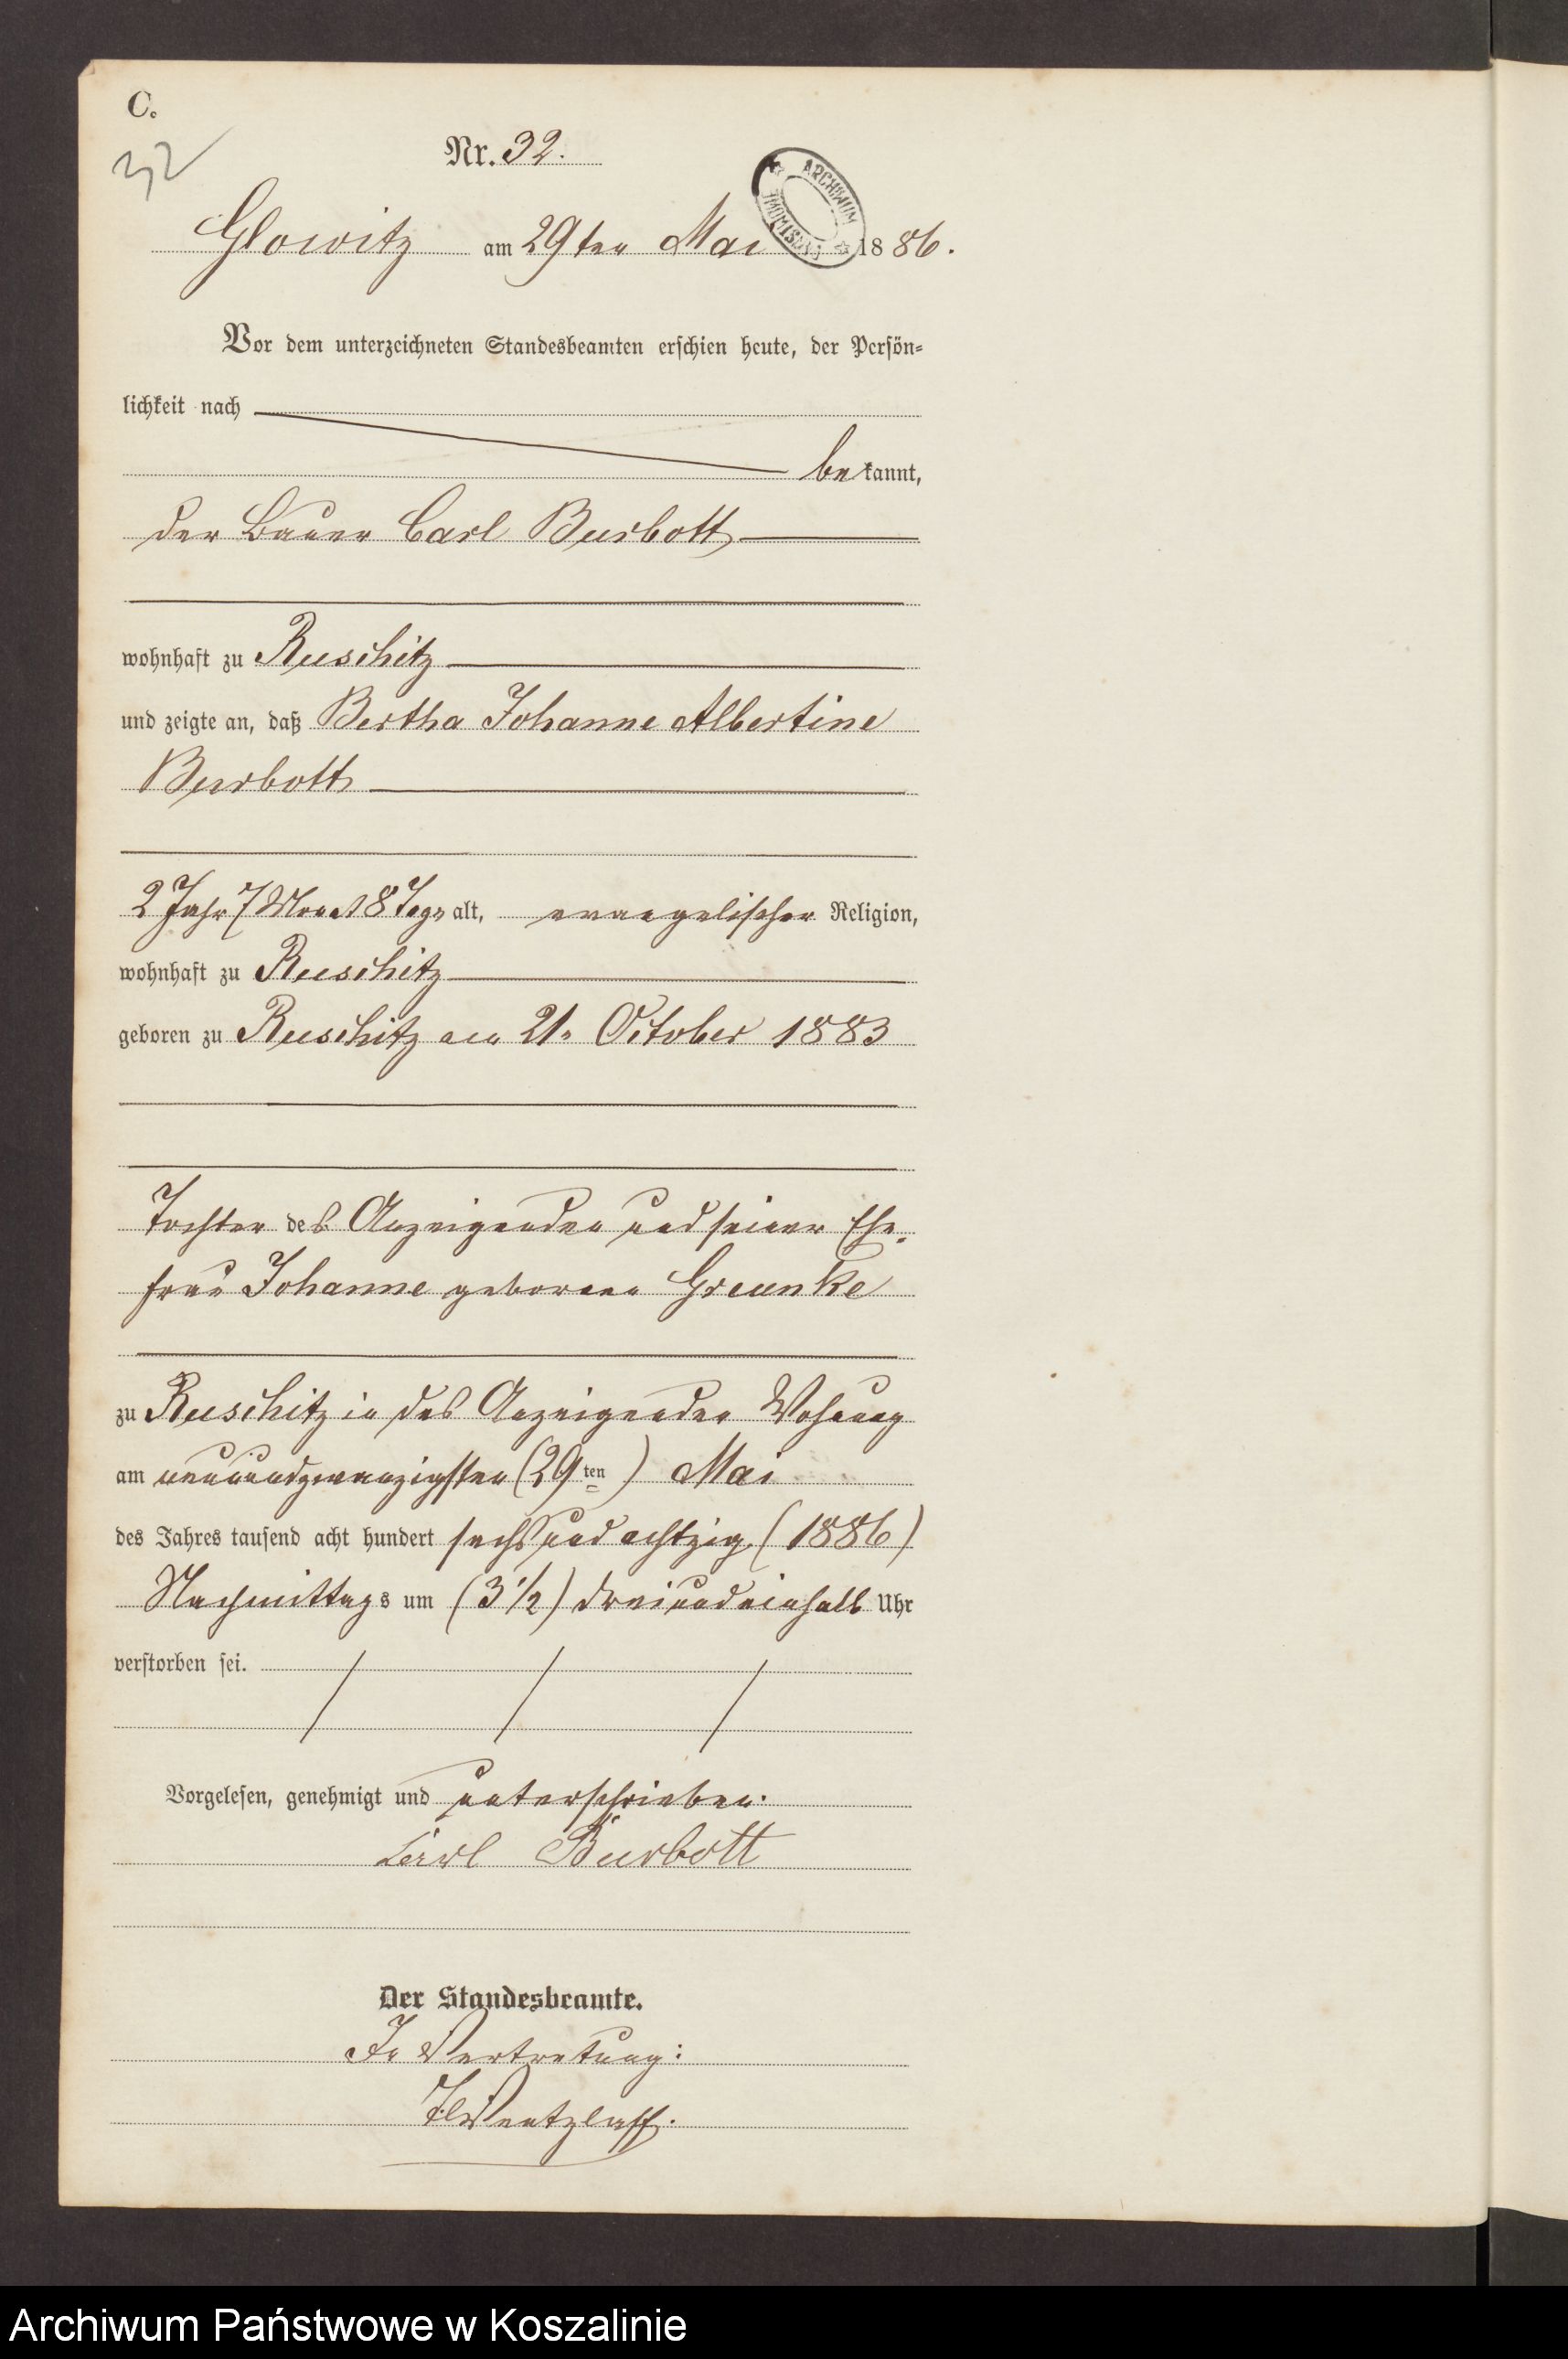 C.
32
Nr. 32.
ARCHIWUM
Glowitz am 29ten Mai 1886.
Vor dem unterzeichneten Standesbeamten erschien heute, der Persön-
lichkeit nach
bekannt,
der Bauer Carl Burbott
wohnhaft zu Ruschitz
und zeigte an, daß Bertha Johanne Albertine
Burbott
2 Jahr 7 Monat 8 Tage alt, evangelischer Religion,
wohnhaft zu Ruschitz
geboren zu Ruschitz am 21. October 1883
Tochter des Anzeigenden und seiner Ehe-
frau Johanne geborene Greunke
zu Ruschitz in des Anzeigenden Wohnung
am neunundzwanzigsten (29ten) Mai
des Jahres tausend acht hundert sechsundachtzig (1886)
Nachmittags um (3 1/2) dreiundeinhalb Uhr
verstorben sei.
Vorgelesen, genehmigt und unterschrieben.
Carl Burbott
Der Standesbeamte.
In Vertretung:
Wentzlaff.
Archiwum Państwowe w Koszalinie